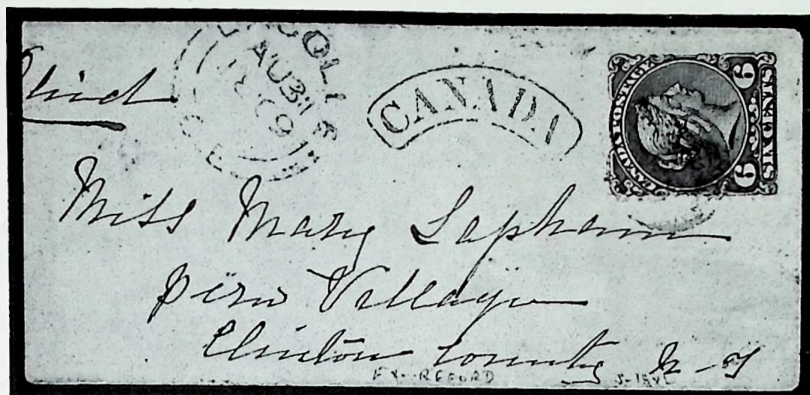 CANADA
CANADA POSTAGE
6 SIX CENTS 6
Miss Mary Lapham
Peru Village
Clinton County N-Y
EX-REFORD